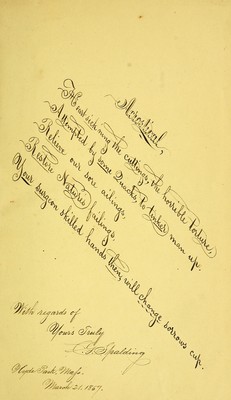 Acrostical,
Heart sick'ning the cuttings, the horrible torture
Attempted by some Quacks, to tinker man up.
Retire our sore ailings,
Restore Natures failings,
Your surgeon skilled hands then, will change sorrows cup.
With regards of
Yours Truly
Spalding
Hyde Park, Mass.
March 21, 1867.